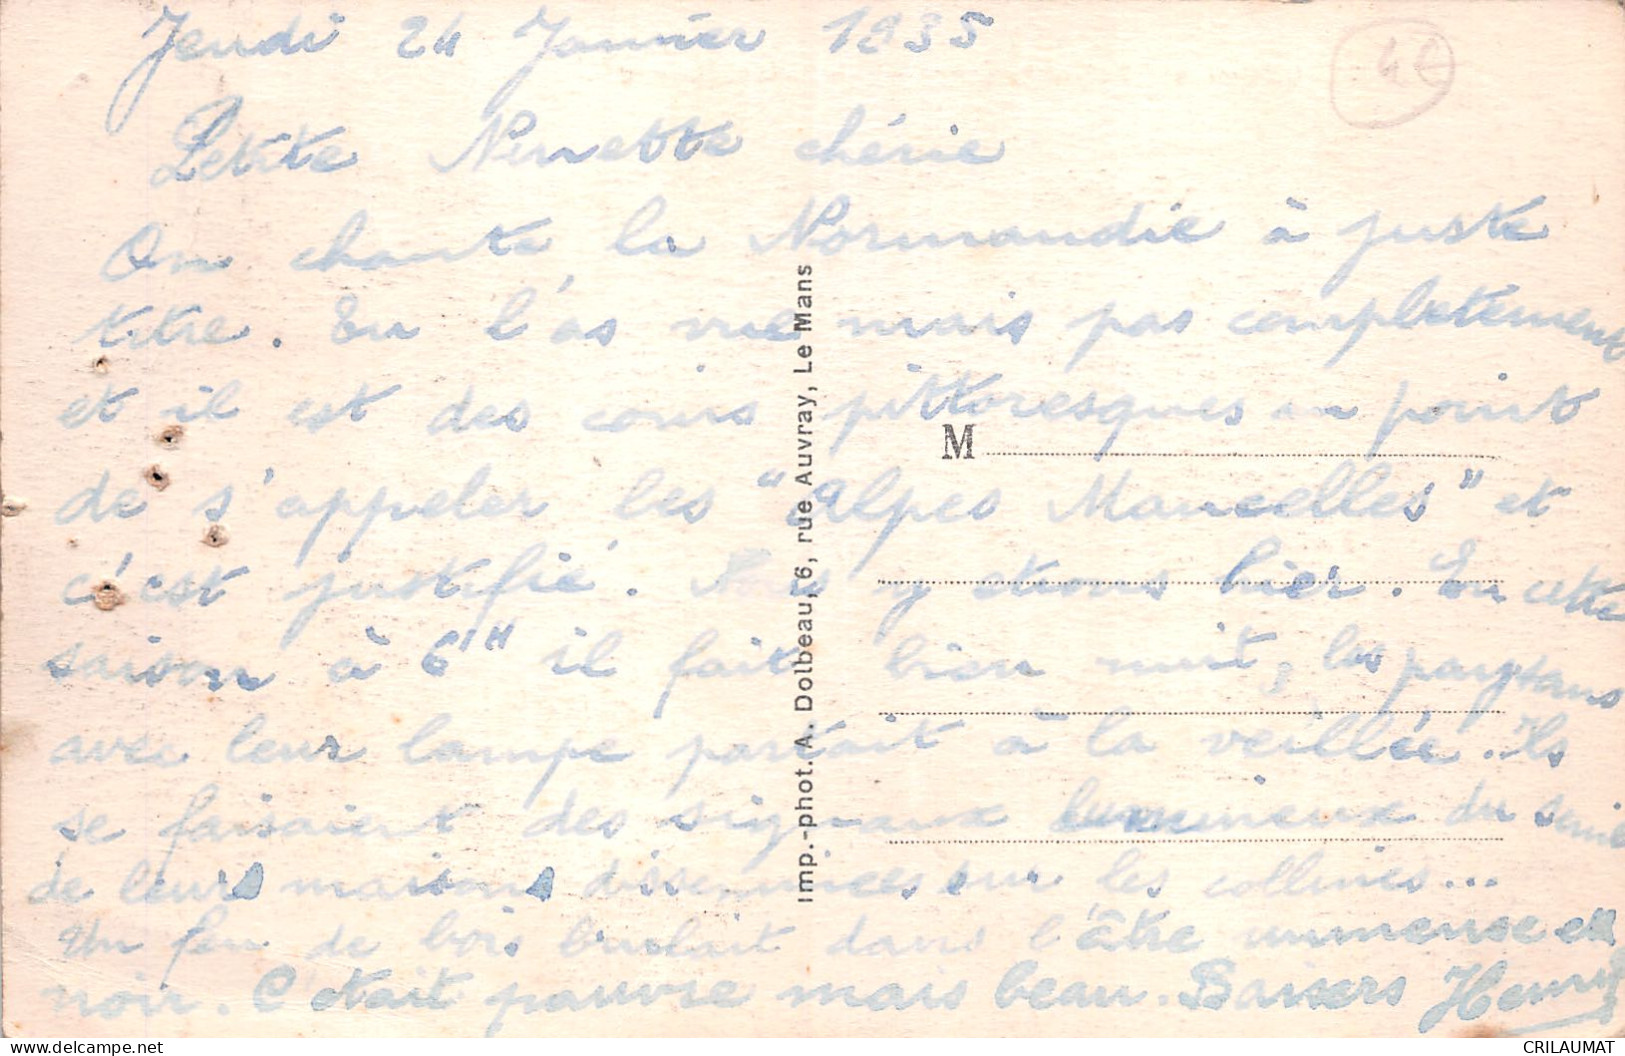 Jeudi 24 Janvier 1935
4€
Petite Ninette chérie
On chante la Normandie à juste
titre. Tu l'as vue mais pas complètement
et il est des coins pittoresques au point
M
de s'appeler les "Alpes Mancelles" et
c'est justifié. Nous y étions hier. En cette
saison à 6H il fait bien nuit, les paysans
avec leur lampe partait à la veillée. Ils
se faisaient des signaux lumineux du seuil
de leurs maisons disseminées sur les collines...
Un feu de bois brulait dans l'âtre immense et
noir. C'était pauvre mais beau. Baisers Henri
Imp.-phot. A. Dolbeau, 6, rue Auvray, Le Mans
CRILAUMAT